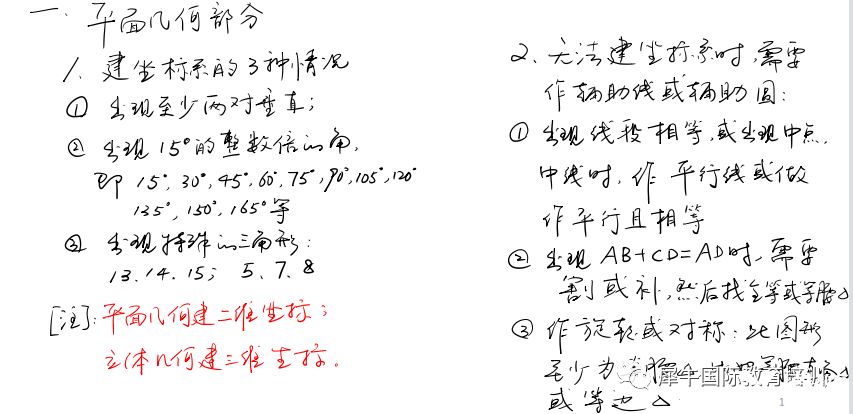 一、平面几何部分
1、建坐标系的3种情况
① 出现至少两对垂直；
② 出现15°的整数倍的角，
即 15°, 30°, 45°, 60°, 75°, 90°, 105°, 120°
135°, 150°, 165° 等
③ 出现特殊的三角形：
13、14、15； 5、7、8
[注]: 平面几何建二维坐标；
立体几何建三维坐标。
2、无法建坐标系时，需要
作辅助线或辅助圆：
① 出现线段相等，或出现中点，
中线时，作平行线或做
作平行且相等
② 出现 AB+CD=AD时，需要
割或补，然后找全等或等腰△
③ 作旋转或对称：此图形
至少为等腰
或等边△
犀牛国际教育
1